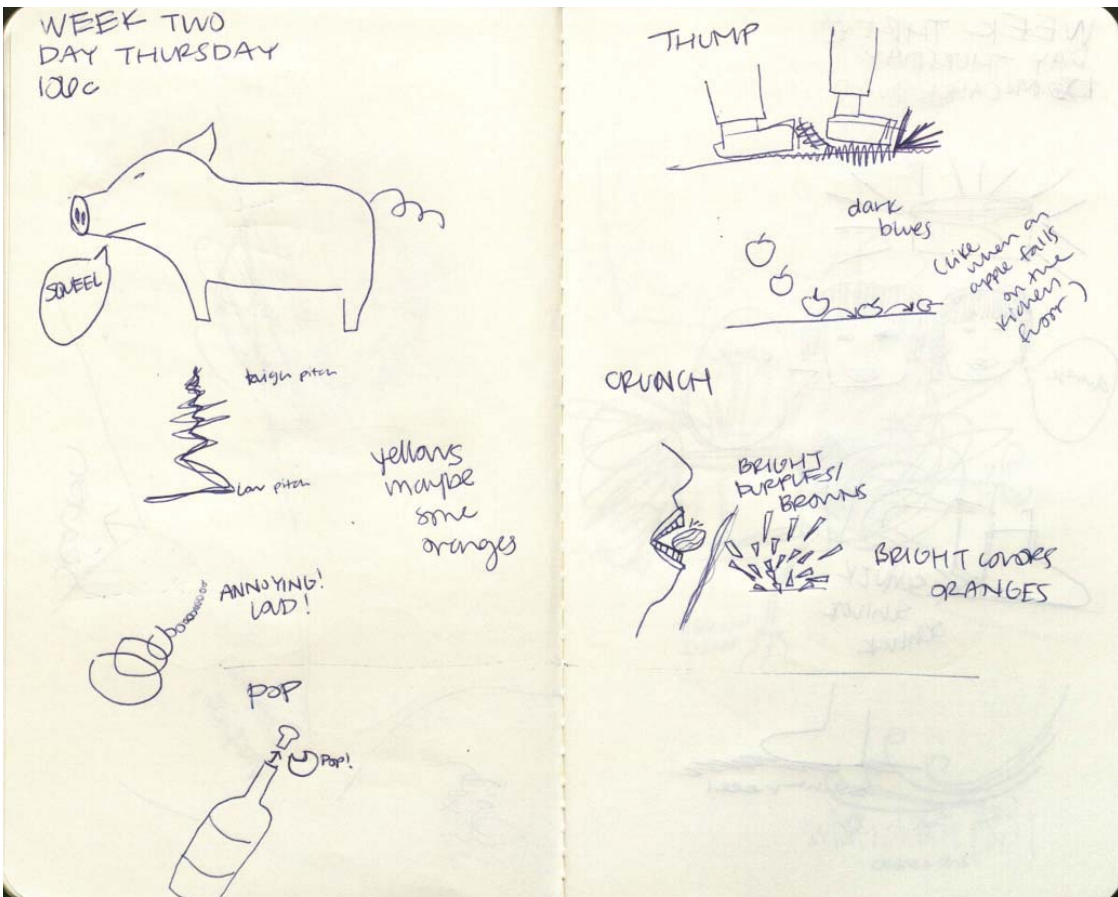 WEEK TWO
DAY THURSDAY
106c
SQUEEL
high pitch
low pitch
yellows
maybe
some
oranges
ANNOYING!
LOUD!
POP
POP!
THUMP
dark
blues
(like
when an
apple falls
on the
kichen
floor)
CRUNCH
BRIGHT
PURPLES/
BROWNS
BRIGHT COLORS
ORANGES